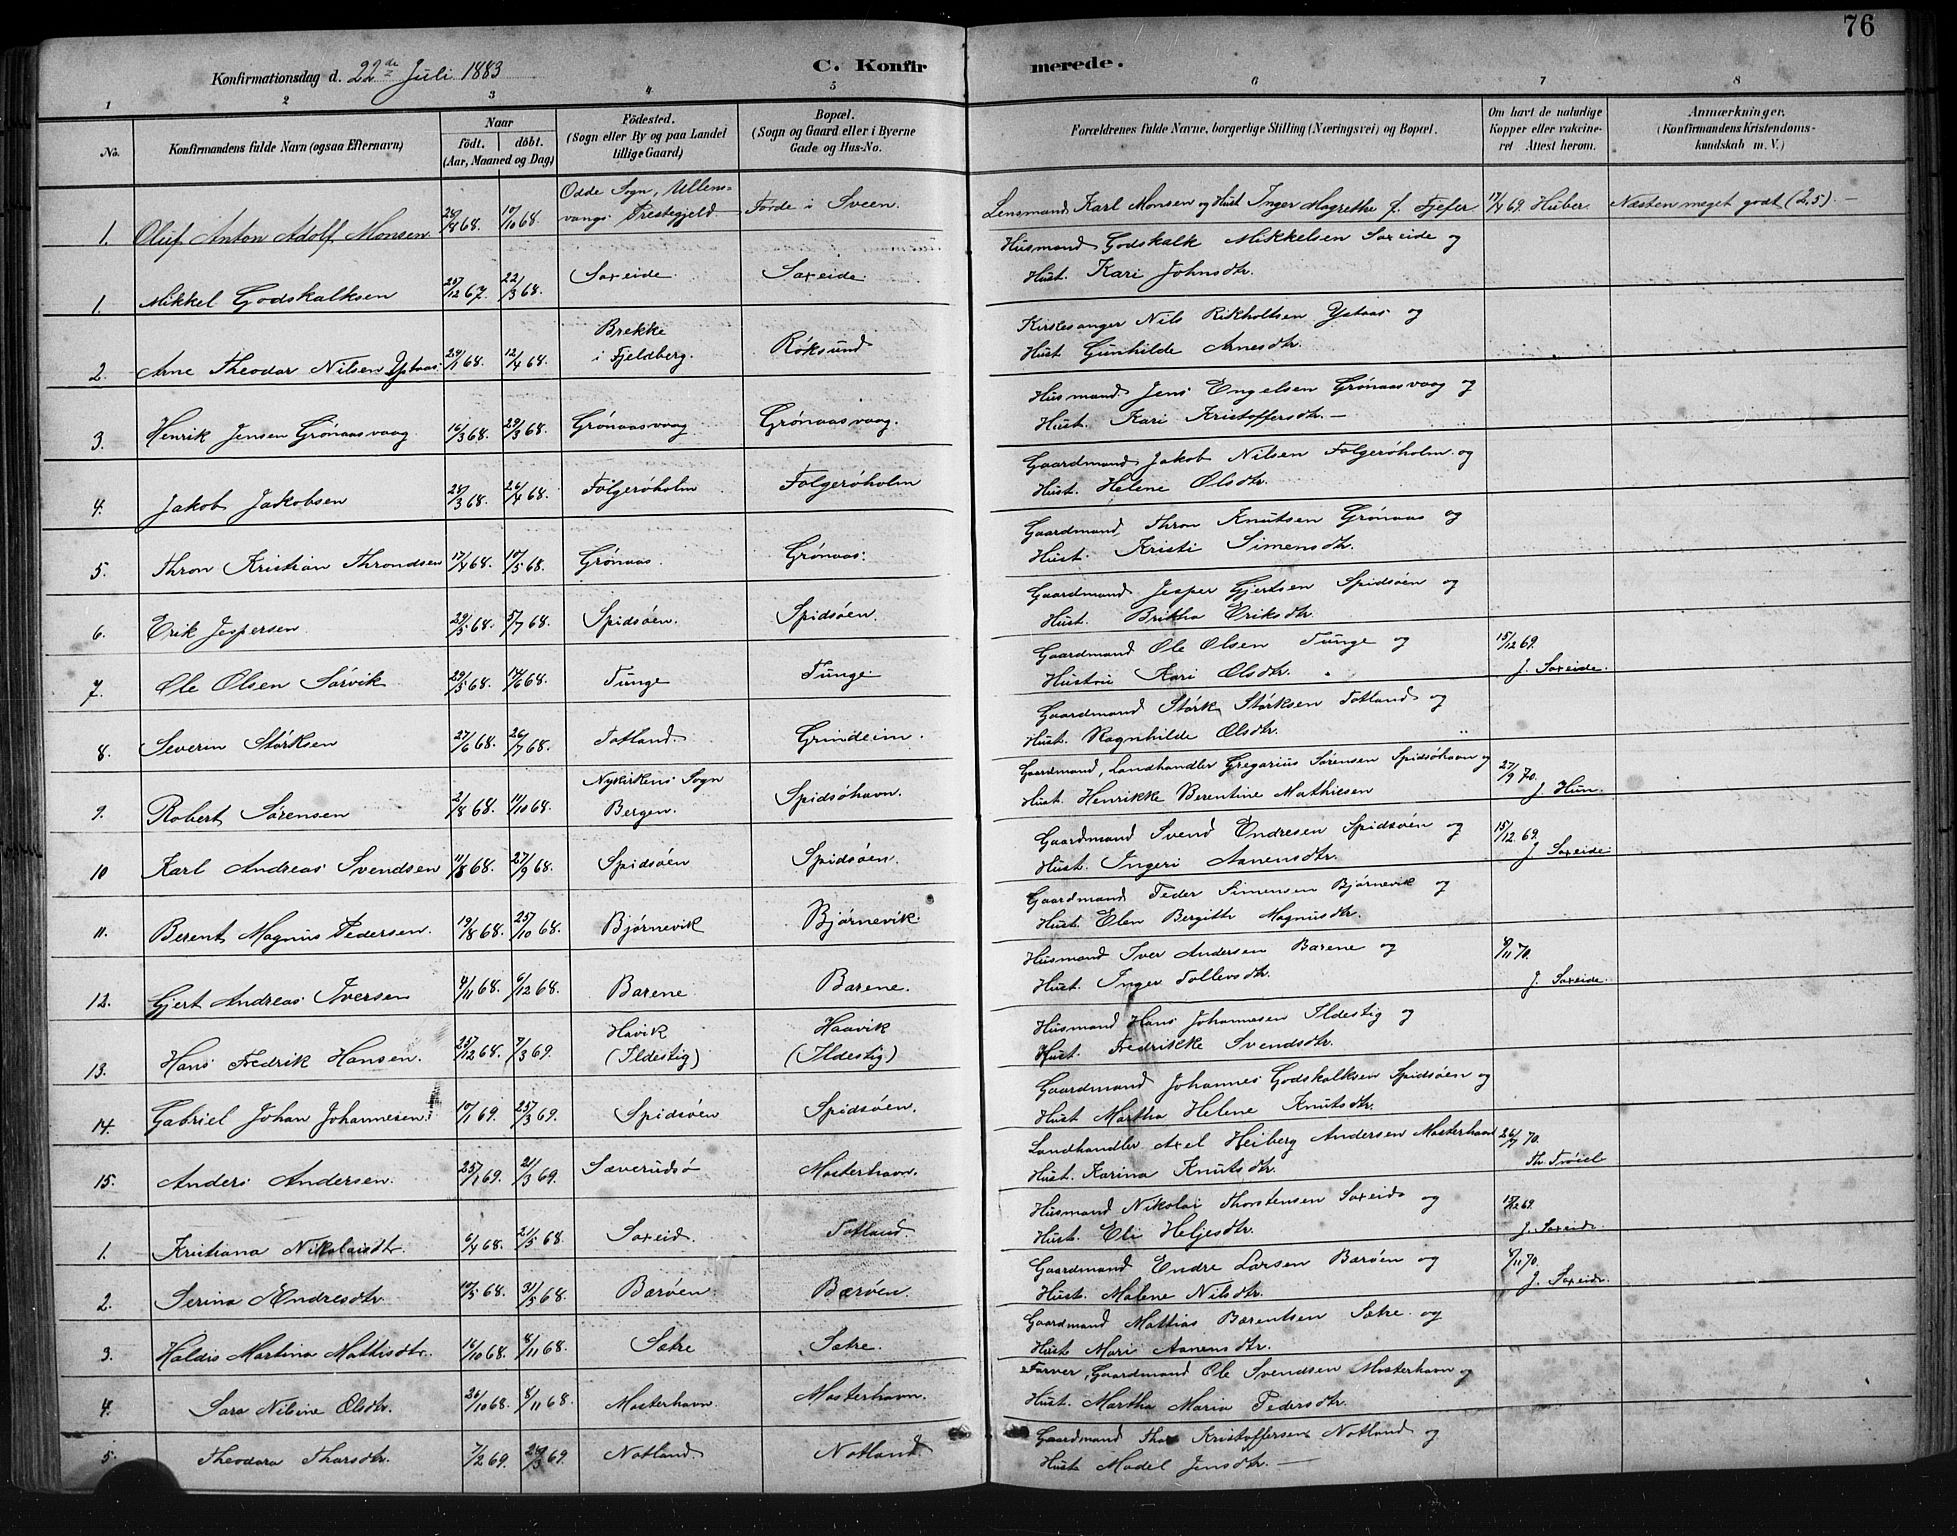 76
Konfirmationsdag d. 22de Juli 1883
C. Konfirmerede.
1 2 3 4 5 6 7 8
No. Konfirmandens fulde Navn (ogsaa Efternavn) Naar født. døbt. (Aar, Maaned og Dag) Fødested. (Sogn eller By og paa Landet tillige Gaard) Bopæl. (Sogn og Gaard eller i Byerne Gade og Hus-No. Forældrenes fulde Navne, borgerlige Stilling (Næringsvei) og Bopæl. Om havt de naturlige Kopper eller vakcineret Attest herom. Anmærkninger. (Konfirmandens Kristendomskundskab m. V.)
Odde Sogn, Ullens-
1. Oluf Anton Adolf Monsen 28/8 68. 10/10 68. vangs Prestegjeld Förde i Sveen. Lensmand Karl Monsen og Hust Inger Magrethe f. Fjefer 17/4 69. Huber. Næsten meget godt (2,5).—
Husmand Godskalk Mikkelsen Saxeide og
1. Mikkel Godskalksen 25/12 67. 22/3 68. Saxeide. Saxeide. Hust. Kari Johnsdtr.
Brekke Kirkesanger Nils Rikholtsen Ystaas og
2. Arne Theodor Nilsen Ystaas 29/1 68. 12/4 68. i Fjeldberg. Røksund Hust Gunhilde Arnesdtr.
Husmand Jens Engelsen Grønaasvaag og
3. Henrik Jensen Grønaasvaag 16/3 68. 29/3 68. Grønaasvaag Grønaasvaag. Hust. Kari Kristoffersdtr.—
Gaardmand Jakob Nilsen Folgerøholm og
4. Jakob Jakobsen 28/3 68. 26/4 68. Folgerøholm Folgerøholm Hust. Helene Olsdtr.
Gaardmand Thron Knutsen Grønaas og
5. Thron Kristian Throndsen 17/4 68. 10/5 68. Grønaas. Grønaas. Hust. Kristi Simensdtr.
Gaardmand Jesper Gjertsen Spidsøen og
6. Erik Jespersen 29/5 68. 5/7 68. Spidsøen. Spidsøen. Hust. Britha Eriksdtr.
Gaardmand Ole Olsen Tunge og 15/12 69.
7. Ole Olsen Sørvik 29/5 68. 14/6 68. Tunge Tunge Hustru Kari Olsdtr. J. Saxeide.
Gaardmand Størk Størksen Totland og
8. Severin Størksen 27/6 68. 26/7 68. Totland Grindeim. Hust. Ragnhilde Olsdtr.
Nykirkens Sogn Gaardmand, Landhandler Gregarius Sørensen Spidsøhavn og 27/9 70.
9. Robert Sørensen 2/8 68. 11/10 68. Bergen. Spidsøhavn. Hust. Henrikke Berentine Mathiesen J. Hun.
Gaardmand Svend Endresen Spidsøen og 15/12 69.
10 Karl Andreas Svendsen 11/8 68. 27/9 68. Spidsøen Spidsøen. Hust. Ingeri Aanensdtr. J. Saxeide.
Gaardmand Peder Simensen Bjørnevik og
11. Berent Magnus Pedersen. 19/8 68. 25/10 68. Bjørnevik Bjørnevik. Hust. Elen Bergitte Magnusdtr.
Husmand Iver Andersen Barene og 8/11 70.
12. Gjert Andreas Iversen 4/11 68. 6/12 68. Barene Barene. Hust. Inger Tollevsdtr. J. Saxeide.
Havik Haavik Husmand Hans Johannesen Ildestig og
13. Hans Fredrik Hansen. 25/12 68. 7/3 69. (Ildestig) (Ildestig) Hust. Fredrikke Svendsdtr.
Gaardmand Johannes Godskalksen Spidsøen og
14. Gabriel Johan Johannesen 10/1 69. 25/3 69. Spidsøen Spidsøen. Hust Martha Helene Knutsdtr.
Landhandler Axel Heiberg Andersen Mosterhavn 26/7 70.
15. Anders Andersen. 25/1 69. 21/3 69. Sæverudsø Mosterhavn. Hust. Karina Knutsdtr. Th. Trøiel
Husmand Nikolai Thorstensen Saxeid og 15/12 69.
1. Kristiana Nikolaisdtr. 6/4 68. 21/5 68. Saxeid. Totland Hust. Eli Heljesdtr. J. Saxeide
Gaardmand Endre Larsen Barøen og 8/11 70.
2. Serina Endresdtr. 10/5 68. 31/5 68. Børøen. Børøen. Hust. Malene Nilsdtr. J. Saxeide.
Gaardmand Mathias Bærentsen Sætre og
3. Haldis Martina Mattisdtr. 16/10 68. 8/11 68. Sætre Sætre. Hust Mari Aanensdtr.
Farver, Gaardmand Ole Svendsen Mosterhavn og
4. Sara Niline Olsdtr. 26/10 68. 8/11 68. Mosterhavn. Mosterhavn. Hust. Martha Maria Pedersdtr.
Gaardmand Thor Kristoffersen Notland og
5. Theodora Thorsdtr. 7/2 69. 28/3 69. Notland Notland Hust Madel Jensdtr.—